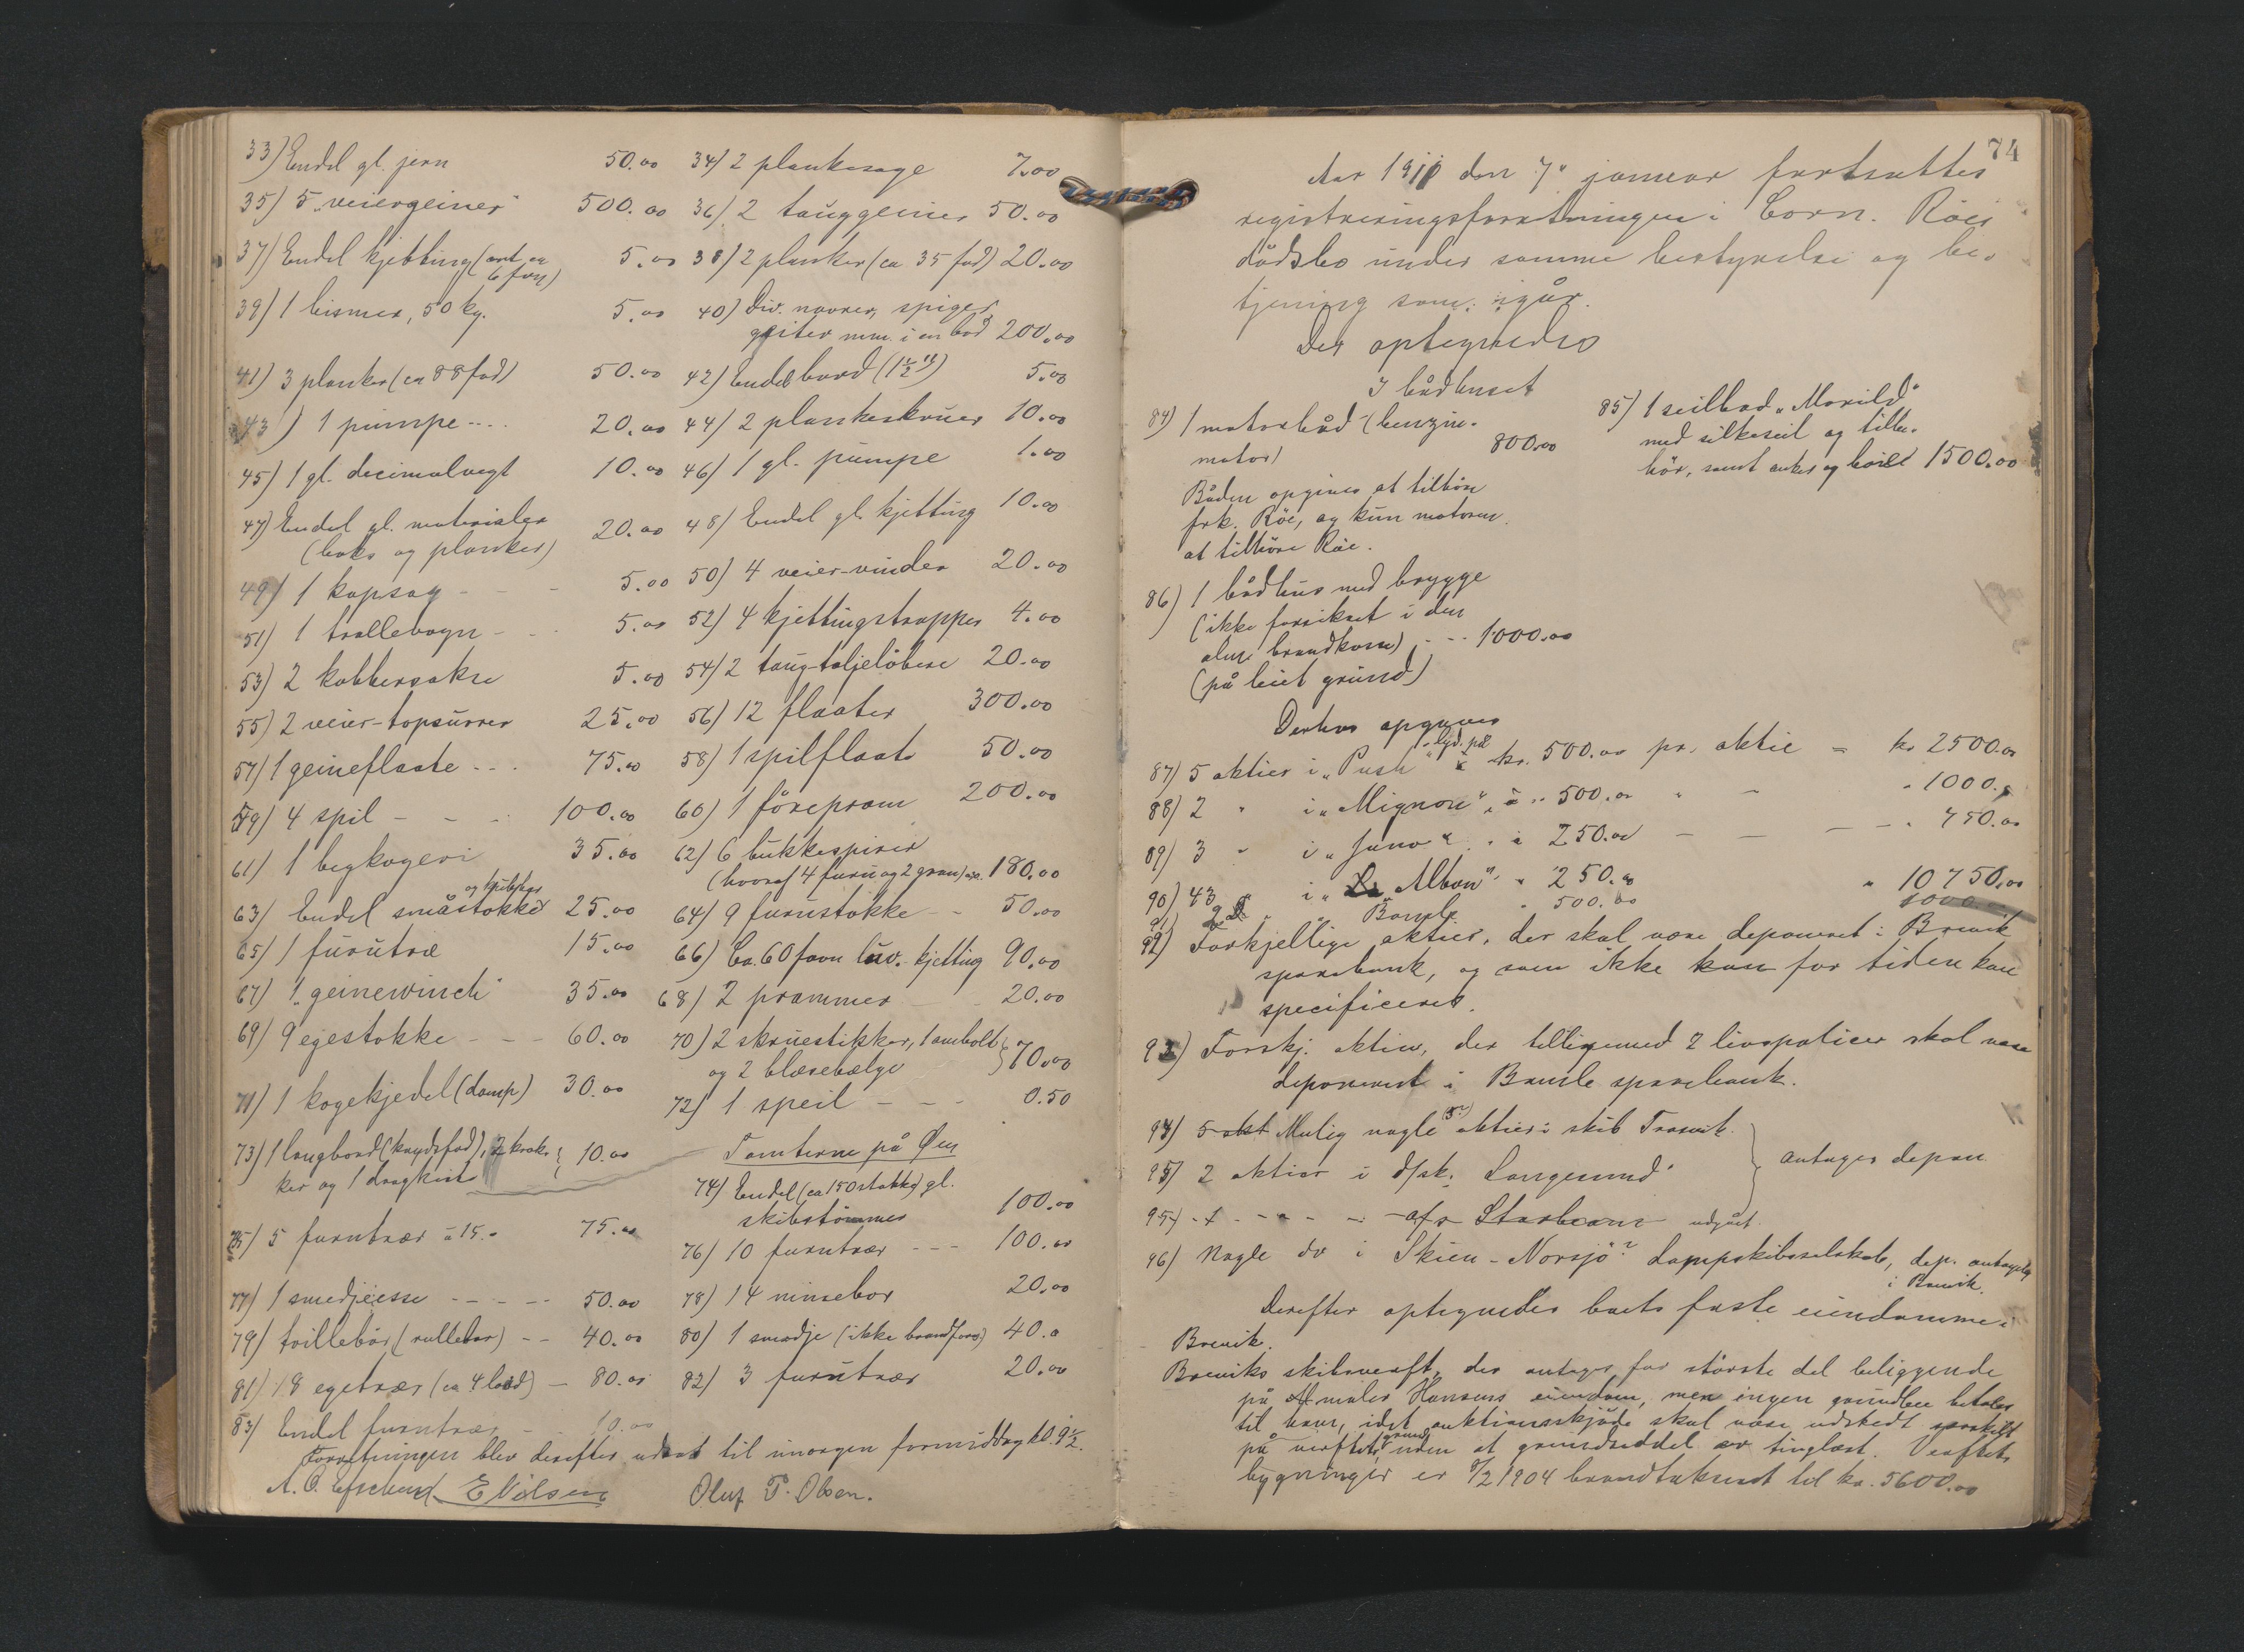 33) Endel gl. jern 50.00 34) 2 plankesage 7.00
35) 5 „veiergeiner" 500.00 36) 2 tauggeiner 50.00
37) Endel kjetting (ant. ca 6 favn) 5.00 38) 2 planker (ca 35 fod) 20.00
39) 1 bismer, 50 kg. 5.00 40) Div. navrer, spiger,
gsiter m.m. i en bod 200.00
41) 3 planker (ca 88 fod) 50.00 42) Endel bord (1 1/2") 5.00
43) 1 pumpe 20.00 44) 2 plankeskruer 10.00
45) 1 gl. decimalvegt 10.00 46) 1 gl. pumpe 1.00
47) Endel gl. materialer 20.00 48) Endel gl. kjetting 10.00
(baks og planker)
49) 1 kapsag 5.00 50) 4 veier-vinder 20.00
51) 1 trallevogn 5.00 52) 4 kjettingstropper 4.00
53) 2 kobbersakse 5.00 54) 2 taug-taljeløbere 20.00
55) 2 veier-topsurrer 25.00 56) 12 flaater 300.00
57) 1 geineflaate 75.00 58) 1 spilflaate 50.00
59) 4 spil 100.00 60) 1 förepram 200.00
61) 1 begkogeri 35.00 62) 6 bukkespirer
(hvoraf 4 furu og 2 gran) 180.00
63) Endel småstokke 25.00 64) 9 furustokke 50.00
65) 1 furutræ 15.00 66) Ca. 60 favn kjetting 90.00
67) 1 „geinewinch" 35.00 68) 2 prammer 20.00
69) 9 egestokke 60.00 70) 2 skruestikker, 1 ambolt
og 2 blæsebælge 70.00
71) 1 kogekjedel (damp) 30.00 72) 1 speil 0.50
73) 1 langbord (krydsfod), 2 krak-
ker og 1 dragkiste 10.00
Tomterne på Øen
74) Endel (ca 150 stokke) gl.
skibstömmer 100.00
75) 5 furutrær à 15.- 75.00 76) 10 furutrær 100.00
77) 1 smedjeesse 50.00 78) 14 minsebor 20.00
79) trillebör (rullebör) 40.00 80) 1 smedje (ikke brandfors) 40.0
81) 18 egetrær (ca 4 lood) 80.00 82) 3 furutrær 20.00
83) Endel furutrær 10.00
Forretningen blev derefter udsat til imorgen formiddag kl. 9 1/2.
E Nilsen Oluf P. Olsen.
74
Aar 1911 den 7. januar fortsattes
registreringsforretningen i Corn. Röes
dödsbo under samme bestyrelse og be-
tjening som igår.
Der optegnedes
I bådhuset
84) 1 motorbåd (benzin-
motor) 800.00
Båden opgives at tilhöre
frk. Röe, og kun motoren
at tilhöre Röe.
85) 1 seilbad „Morild"
med silkeseil og tilbe-
hör, samt anker og 1500.00
86) 1 bådhus med brygge
(ikke forsikret i den
alm. brandkasse) 1000.00
(på leiet grund)
Derhos opgives
87) 5 aktier i „Push" lyd. på kr. 500.00 pr. aktie = kr 2500.00
88) 2 " i „Mignon" à " 500.00 " 1000.
89) 3 " i „Juno" " à 250.00 " 750.00
90) 43 " i „Albon" " 250.00 " 10750.00
91) 2 " Bamble " 500.00 1000
92) Forskjellige aktier, der skal være deponeret i Brevik
sparebank, og som ikke kan for tiden kan
specificeres.
93) Forskj. aktier, der tilligemed 2 livspolicer skal være
deponeret i Bamble sparebank.
94) 5 akt Mulig nogle (5?) aktier i skib Trosvik
95) 2 aktier i d/sk. Langesund antages depon
95) - 1 - - - a/s Starbeam udgåt.
96) Nogle do i Skien-Norsjö? Dampskibsselskab, dep. antagelig
i Brevik.
Derefter optegnedes boets faste eiendomme i
Brevik.
Breviks skibsverft, der antages for störste del beliggende
på maler Hansens eiendom, men ingen grundleie betales
til ham, idet auktionsskjöde skal være udstedt særskilt
på verftets grund, uden at grundseddel er tinglæst. Verftets
bygninger er 8/2 1904 brandtakseret til kr. 5600.00